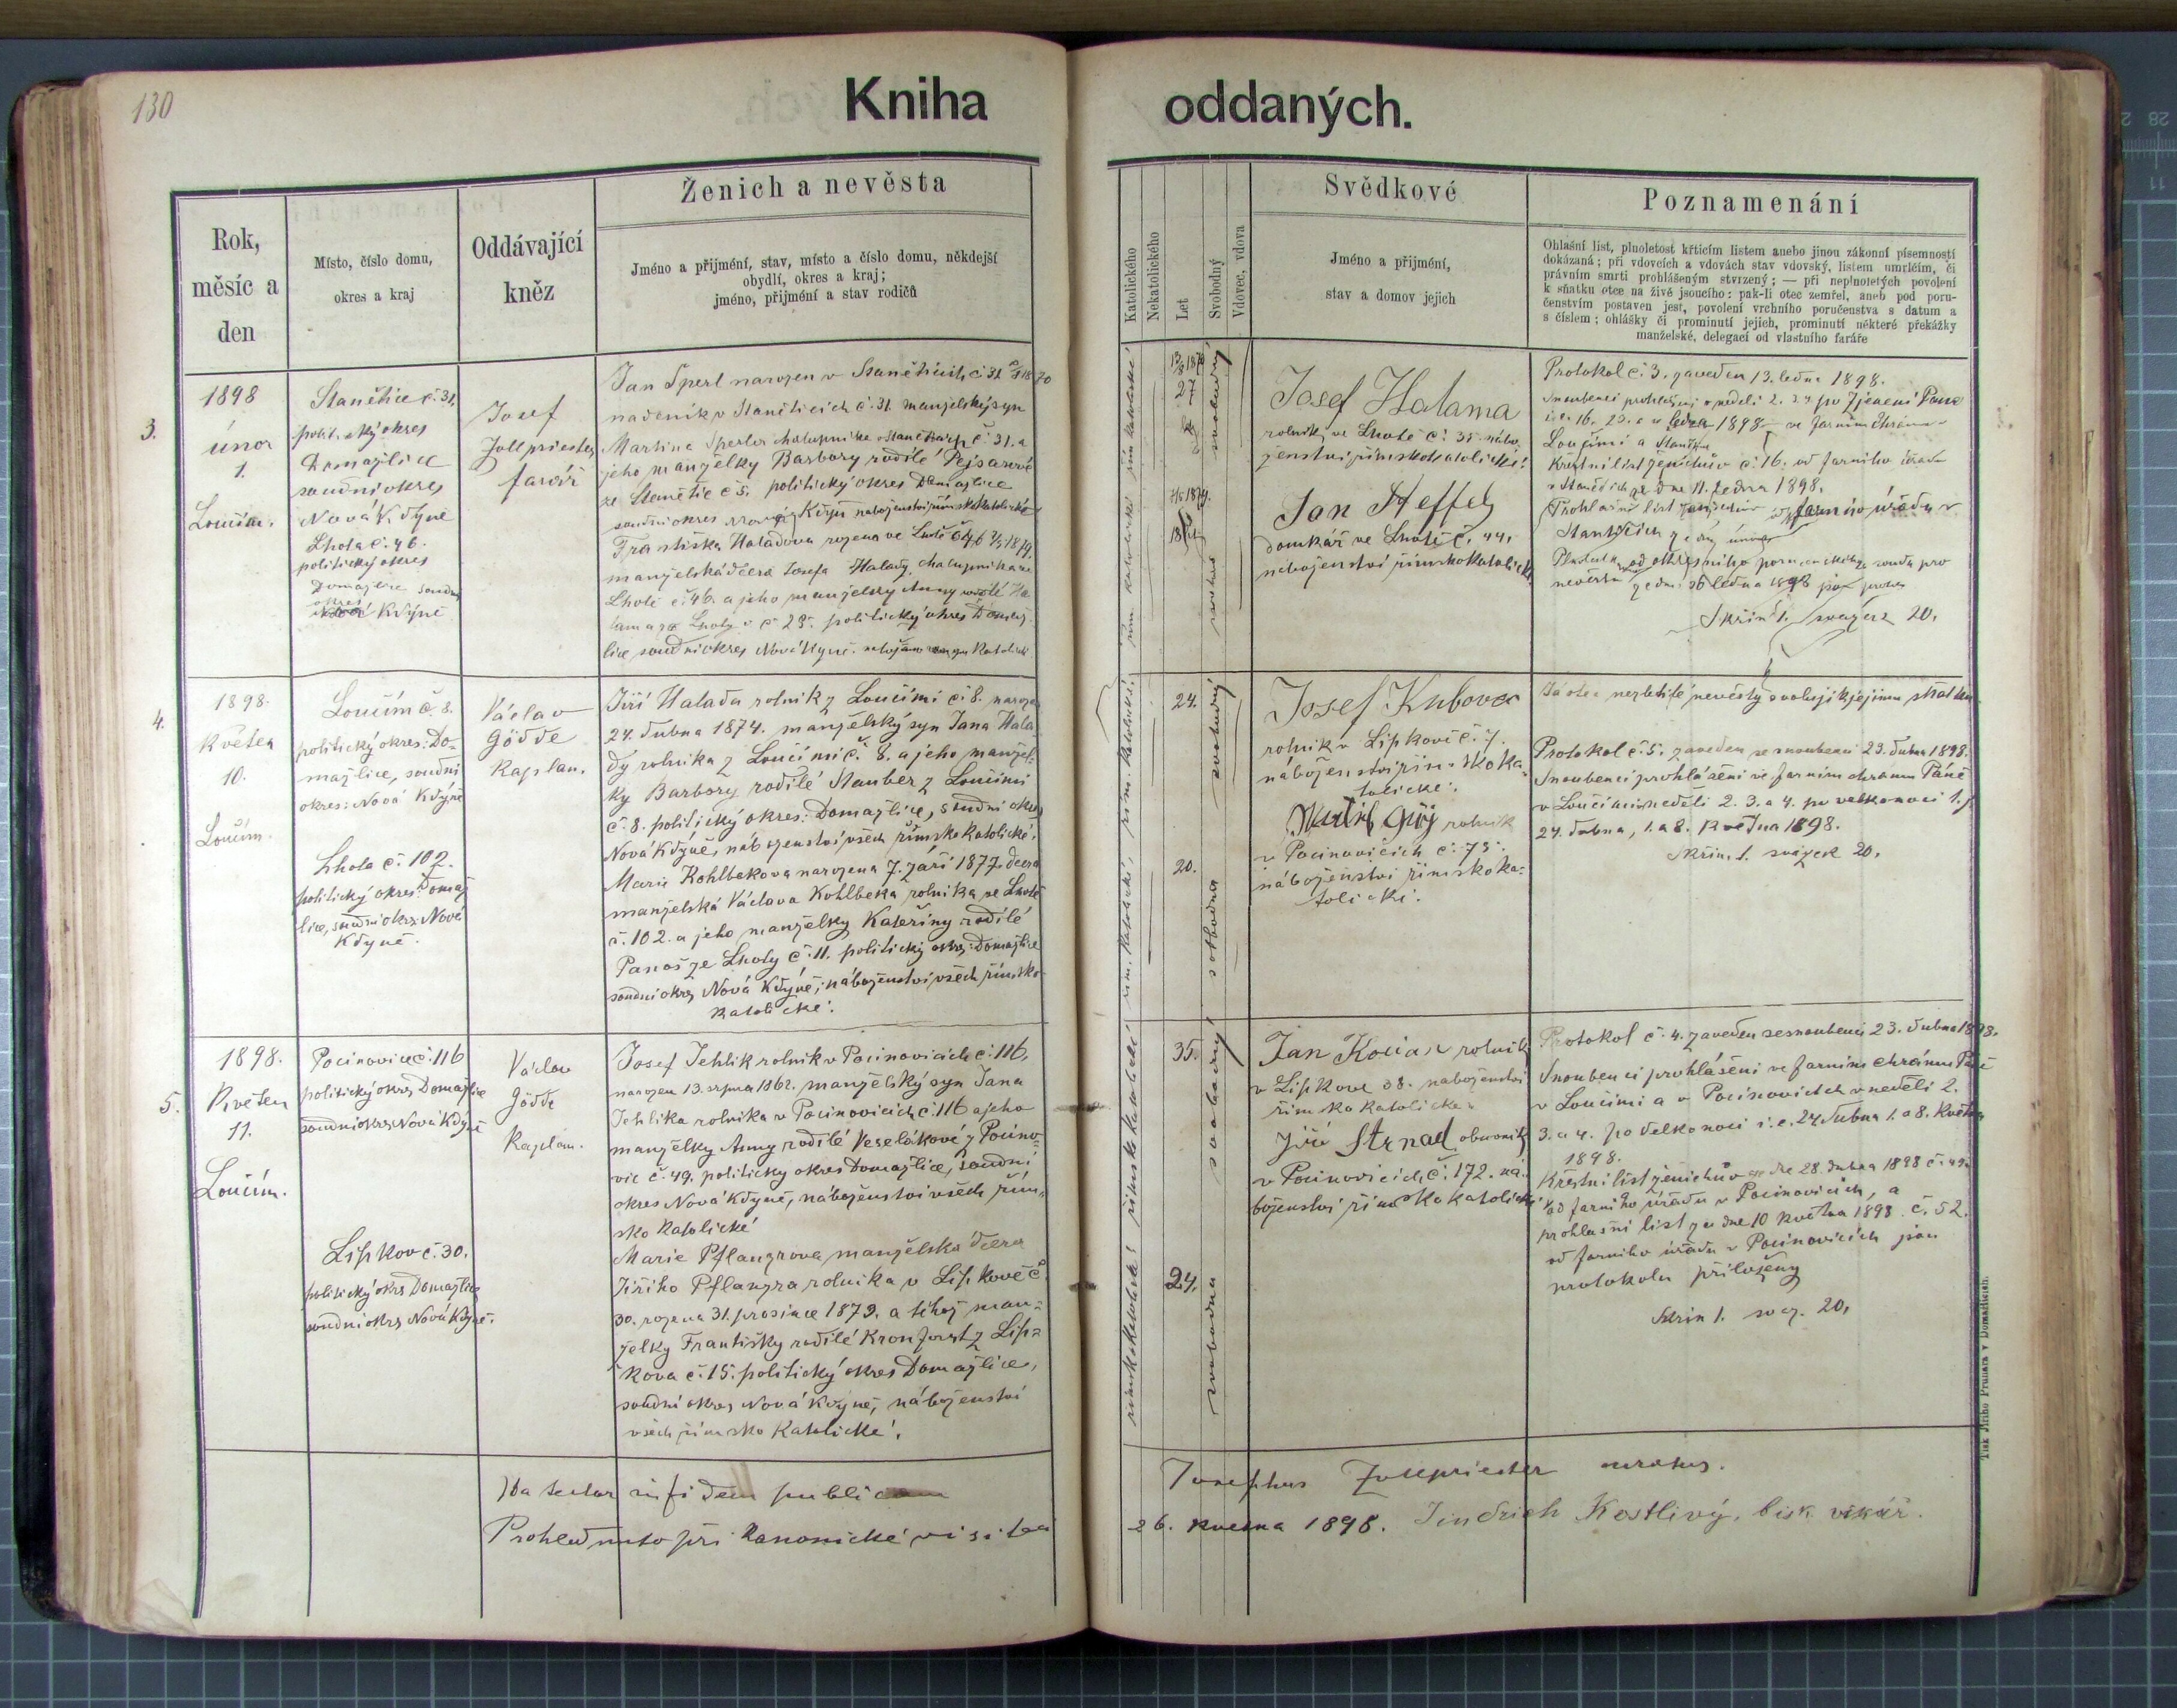 130
Kniha oddaných.
Rok, měsíc a den
Místo, číslo domu, okres a kraj
Oddávající kněz
Ženich a nevěsta
Jméno a přijmění, stav, místo a číslo domu, někdejší
obydlí, okres a kraj;
jméno, přijmění a stav rodičů
Katolického
Nekatolického
Let
Svobodný
Vdovec, vdova
Svědkové
Jméno a přijmění,
stav a domov jejich
Poznamenání
Ohlašní list, plnoletost křticím listem anebo jinou zákonní písemností
dokázaná; při vdovcích a vdovách stav vdovský, listem umrlčím, či
právním smrti prohlášeným stvrzený; — při neplnoletých povolení
k sňatku otce na živě jsoucího: pak-li otec zemřel, aneb pod poru-
čenstvím postaven jest, povolení vrchního poručenstva s datum a
s číslem; ohlášky či prominutí jejich, prominutí některé překážky
manželské, delegací od vlastního faráře
3.
1898
února
1.
Loučim.
Stanětice č. 31.
politický okres
Domažlice
soudní okres
Nová Kdyne
Lhota č. 46.
politický okres
Domažlice soudní
okres
Kdyně
Josef
Zollpriester
farář
Jan Sperl narozen v Staněticích č 31
v Staněticích č. 31. manželský syn
Martina Sperla chalupníka v Staněticích č. 31. a
jeho manželky Barbory rodilé Pejsarové
ze Stanětic č 5. politický okres Domažlice
soudní okres Nová Kdyň náboženství římskokatolické
Františka Haladova rozena ve Lhotě č. 46
manželská dcera Josefa Halady, chalupníka ve
Lhotě č. 46. a jeho manželky Anny rodilé Ha
lama ze Lhoty č 25. politický okres Domaž
lice soudní okres Nová Kdyně.
27
svobodný
Josef Halama
rolník ve Lhotě č. 35. nábo
ženství římskokatolické.
Jan Heffel
domkář ve Lhotě č. 44.
náboženství římskokatolické
Protokol č. 3. zaveden 13. ledna 1898.
Snoubenci prohlášeni v neděli 2. 3. 4. po Zjevení Páně
ledna 1898 ve farním chrámu
Loučimi a Staněticích
Křestní list ženichův č. 16. od farního úřadu
v Staněticích ze dne 11. ledna 1898.
Prohlašní list farního úřadu v
Staněticích
Skříň 1. svazek 20.
4.
1898.
Květen
10.
Loučim.
Loučim č. 8.
politický okres: Do-
mažlice, soudní
okres: Nová Kdýně
Lhota č. 102.
politický okres: Domaž
lice, soudní okrs: Nová
Kdyně.
Václav
Gödde
Kaplan.
Jiří Halada rolník z Loučimi č. 8. narozen
24. dubna 1874. manželský syn Jana Hala
dy rolníka z Loučimi č. 8. a jeho manžel-
ky Barbory rodilé Stauber z Loučimi
č. 8. politický okres: Domažlice, soudní okres
Nová Kdýně, náboženství všech římsko katolické.
Marie Kohlbekova narozena 7. září 1877. dcera
manželská Václava Kohlbeka rolníka ve Lhotě
č. 102. a jeho manželky Kateřiny rodilé
Panoš ze Lhoty č. 11. politický okres: Domažlice
soudní okres Nová Kdyně, náboženství všech římsko
katolické.
24.
svobodný
20.
svobodna
Josef Kubovec
rolník v Lipkově č. 7.
náboženství římskoka-
tolické.
rolník
v Pocinovicích č. 73.
náboženství římskoka-
tolické.
nezletilé nevěsty svoluji k jejímu sňatku
Protokol č. 5. zaveden se snoubenci 23. dubna 1898.
Snoubenci prohlášeni ve farním chrámu Páně
v Loučimi v neděli 2. 3. a 4. po velkonoci t. j.
24. dubna, 1. a 8. Května 1898.
Skřín. 1. svazek 20.
5.
1898.
Květen
11.
Loučim.
Pocinovice č. 116
politický okres Domažlice
soudní okres Nová Kdyně
Lipkov č. 30.
politický okrs Domažlice
soudní okrs Nová Kdyně.
Václav
Gödde
Kaplan.
Josef Jehlik rolník v Pocinovicích č. 116,
narozen 13. srpna 1862. manželský syn Jana
Jehlika rolníka v Pocinovicích č. 116 a jeho
manželky Anny rodilé Veselákové z Pocino-
vic č. 49. politicky okres Domažlice, soudní
okres Nová Kdyně, náboženství všech řím-
sko katolické
Marie Pflanzrova manželska dcera
Jiřího Pflanzra rolníka v Lipkově č.
30. rozena 31. prosince 1873. a téhož man-
želky Františky rodilé Kronforst z Lip-
kova č. 15. politický okres Domažlice,
soudní okres Nová Kdyně, náboženství
všech římsko Katolické.
35.
svobodný
24.
svobodna
Jan Kocian rolník
v Lipkově 38. náboženství
římsko katolické.
Jiří Strnad obuvník
v Pocinovicích č. 172. ná-
boženství římsko katolické
Protokol č. 4. zaveden se snoubenci 23. dubna 1898.
Snoubenci prohlášeni ve farním chrámu Páně
v Loučimi a v Pocinovicích v neděli 2.
3. a 4. po Velkonoci i. e. 24. dubna 1. a 8. Května
1898.
Křestní list ženichův ze dne 28. dubna 1898 č. 49.
od farního úřadu v Pocinovicích, a
prohlašní list ze dne 10 května 1898. č. 52.
od farního úřadu v Pocinovicích jsou
protokolu přiloženy
Skřin 1. svaz. 20.
Ita testor in fidem publicam Josephus Zollpriester curatus.
Prohlednuto při kanonické visitaci 26. května 1898. Jindrich Kostlivý, bisk. vikář.
Tisk Jiřího Prunara v Domažlicích.